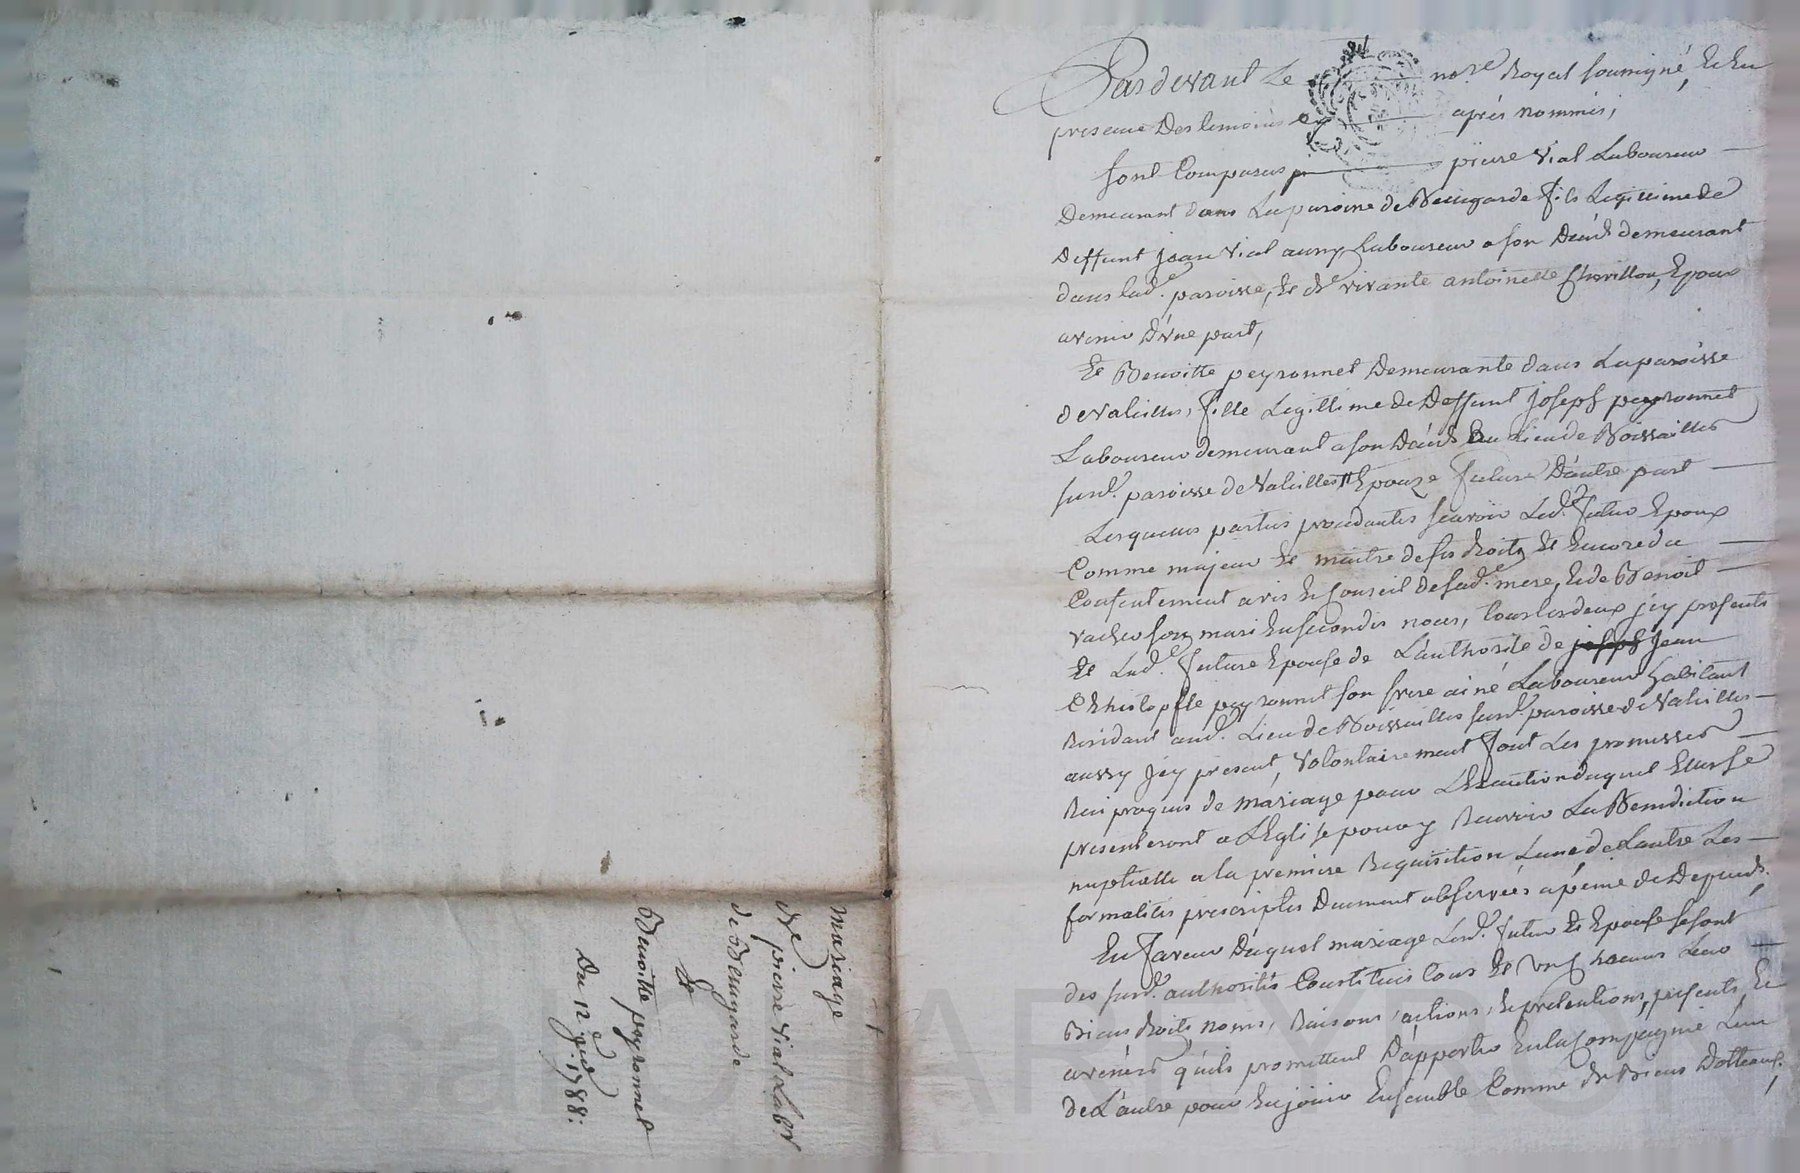 Pardevant Le nore. Royal soussigné, Et En
presence Des temoins apres nommés,
sont Comparus pierre Vial Laboureur
Demeurant dans La paroisse de Bellegarde fils Legitime de
Deffunt jean Vial aussy Laboureur a son Décés demeurant
dans lad.e paroisse, Et de vivante antoinette Chovillon, Epoux
avenir D'une part,
Et Benoitte peyronnet Demeurante dans La paroisse
de Valeilles, fille Legittime de Deffunt joseph peyronnet
Laboureur demeurant a son Décés au Lieu de Boissailles
susd. paroisse de Valeilles Epouze future D'autre part
Lesquelles parties procedantes scavoir Led. futur Epoux
Comme majeur Et maitre de ses droits Et Encore du
Consentement avis Et Conseil de sad.e mere, Et de Benoit
son mari En secondes noces, tous les deux jcy presents
Et Lad.e future Epouse de L'authorité de joseph jean
Christophle peyronnet son frere ainé Laboureur habitant
Residant aud. Lieu de Boissailles susd. paroisse de Valeilles
aussy jcy present, Volontairement font Les promesses
Reciproques de mariage pour L'Execution duquel Elles se
presenteront a L'Eglise pour y Recevoir La Benediction
nuptialle a la premiere Requisition L'une de L'autre Les
formalités prescriptes Duement observées a peine de Depends.
En faveur Duquel mariage Lesd. futur Et Epouse se sont
des susd. authorités Constitués tous Et Uns Chacuns Leurs
Biens droits, noms, Raisons, actions, Et pretentions, presents Et
avenirs qu'ils promettent D'apporter En la Compagnie L'un
de L'autre pour En jouir Ensemble Comme de Biens Dotteaux.
mariage
De pierre Vial Labr
de Bellegarde
Et
Benoitte peyronnet
Du 12e 1788:
CAREYRON